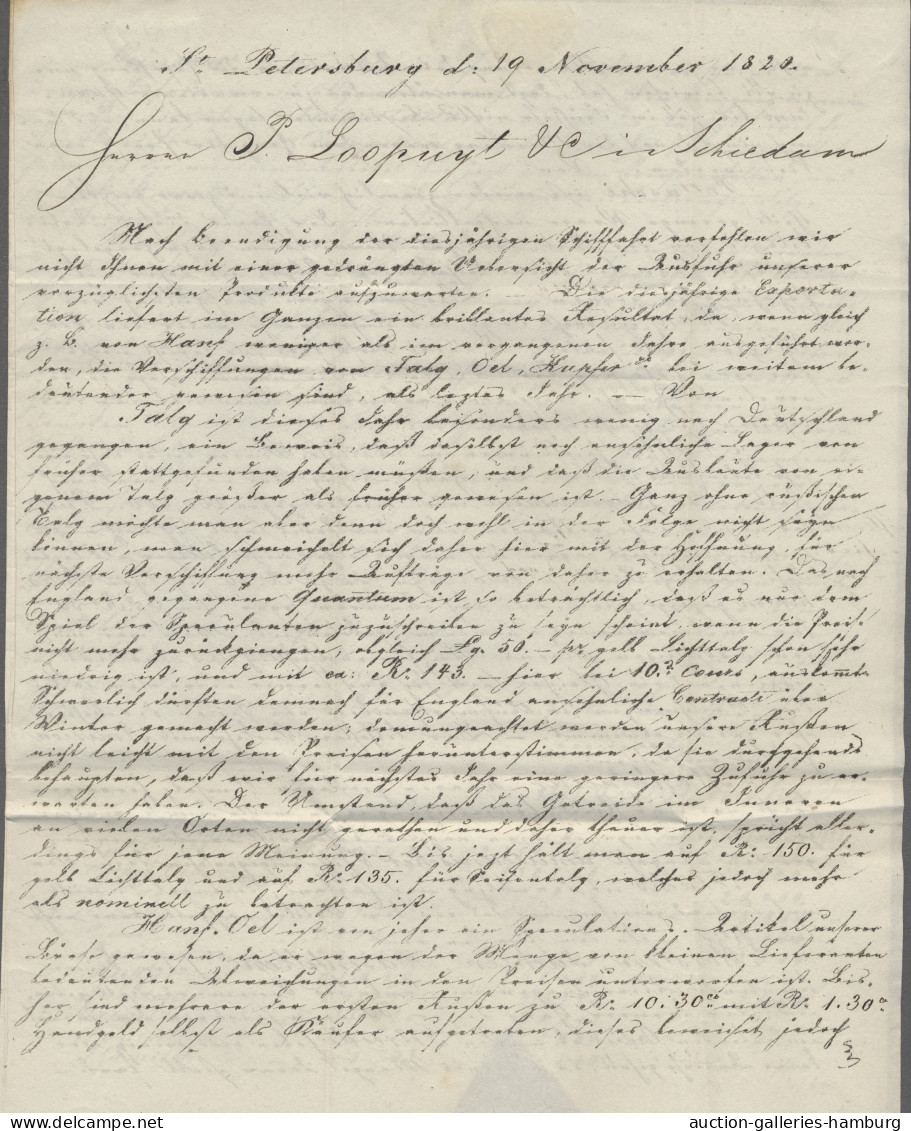 St. Petersburg d: 19 November 1820.
Herren P. Loopuyt & C in Schiedam
Nach Beendigung der diesjährigen Schifffahrt verfehlen wir
nicht Ihnen mit einer gedrängten Uebersicht der Ausfuhr unserer
vorzüglichsten Produkte aufzuwarten. — Die diesjährige Exporta-
tion liefert im Ganzen ein brillantes Resultat, da, wenn gleich
z. B. von Hanf weniger als im vergangenen Jahre ausgeführt wor-
den, die Verschiffungen von Talg, Oel, Kupfer bei weitem be-
deutender gewesen sind, als leztes Jahr. — Von
Talg ist dieses Jahr besonders wenig nach Deutschland
gegangen, ein Beweis, daß daselbst noch ansehnliche Lager von
früher stattgefunden haben müßen, und daß die Ausbeute von ei-
genem Talg größer als früher gewesen ist. — Ganz ohne rußischen
Talg möchte man aber denn doch wohl in der Folge nicht seyn
können, man schmeichelt sich daher hier mit der Hoffnung, für
nächste Verschiffung mehr Aufträge von daher zu erhalten. Das nach
England gegangene Quantum ist so beträchtlich, daß es nur dem
Spiel der Speculanten zuzuschreiben zu seyn scheint, wenn die Preise
nicht mehr zurückgiengen, obgleich 50. — gelb Lichttalg schon sehr
niedrig ist, und mit ca: R. 143. — hier bei 10 Cours, auskommt.
Schwerlich dürften demnach für England ansehnliche Contracte über
Winter gemacht werden; demungeachtet werden unsere Rußen
nicht leicht mit den Preisen herunterstimmen, da sie durchgehends
behaupten, daß wir für nächstes Jahr eine geringere Zufuhr zu er-
warten haben. Der Umstand, daß das Getreide im Inneren
an vielen Orten nicht gerathen und daher theuer ist, spricht aller-
dings für jene Meinung. — Bis jezt hält man auf R. 150. für
gelb Lichttalg und auf R. 135. für Seifentalg, welches jedoch mehr
als nominell zu betrachten ist.
Hanf-Oel ist von jeher ein Speculations-Artikel unserer
Börse gewesen, da er wegen der Menge von kleinen Lieferanten
bedeutenden Abweichungen in den Preisen unterworfen ist. Bis-
her sind mehrere der ersten Rußen zu R. 10. 30 mit R. 1. 30
Handgeld selbst als Käufer aufgetreten, dieses beweiset jedoch
auction-galleries-hamburg